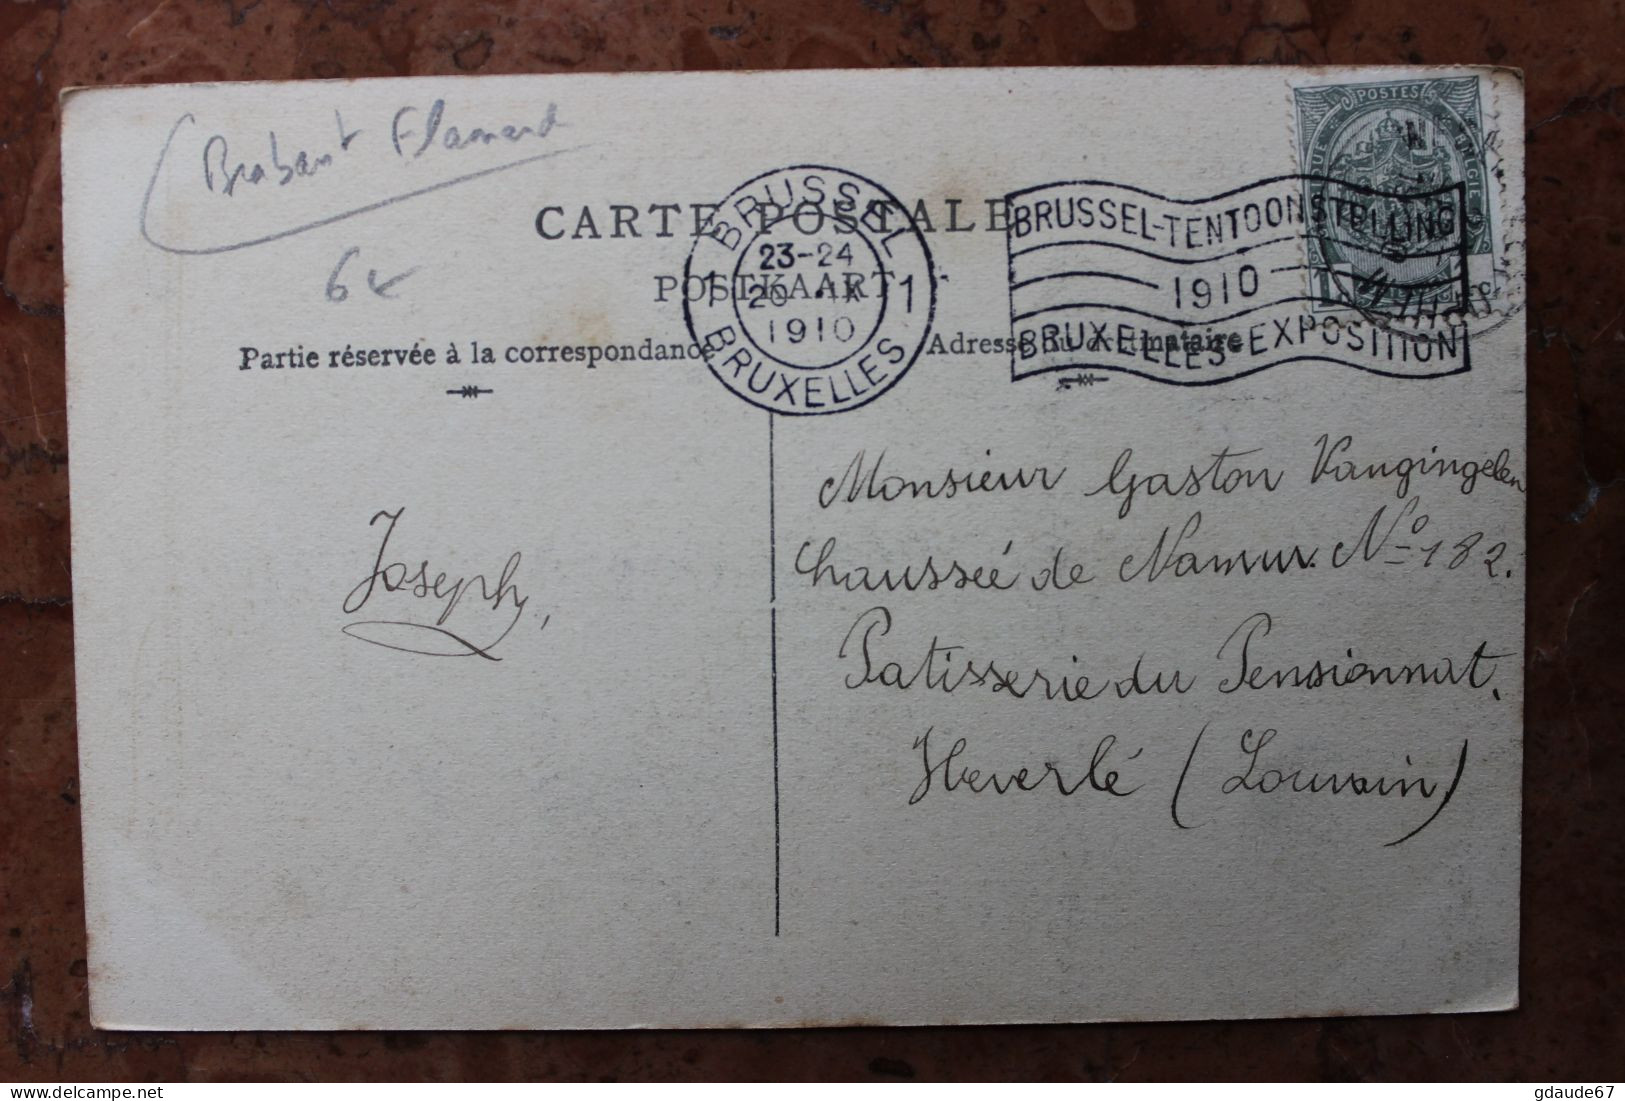 Brabant Flamand
6€
CARTE POSTALE
POSTKAART
Partie réservée à la correspondance
Adresse du destinataire
BRUSSEL
23-24
20 IX
1910
1 1
BRUXELLES
BRUSSEL-TENTOONSTELLING
1910
BRUXELLES-EXPOSITION
POSTES
Joseph,
Monsieur Gaston Vangingelen
Chaussée de Namur. No 182.
Patisserie du Pensionnat.
Heverlé (Louvain)
gdaude67